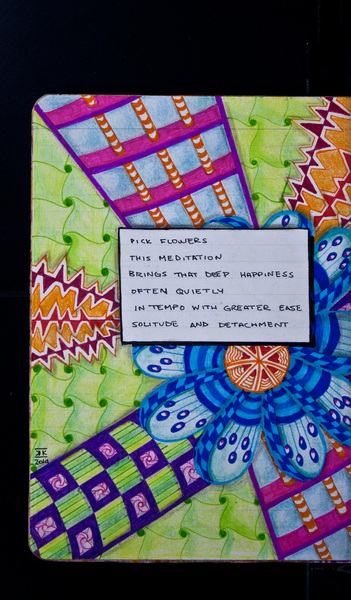 PICK FLOWERS
THIS MEDITATION
BRINGS THAT DEEP HAPPINESS
OFTEN QUIETLY
IN TEMPO WITH GREATER EASE
SOLITUDE AND DETACHMENT
2014